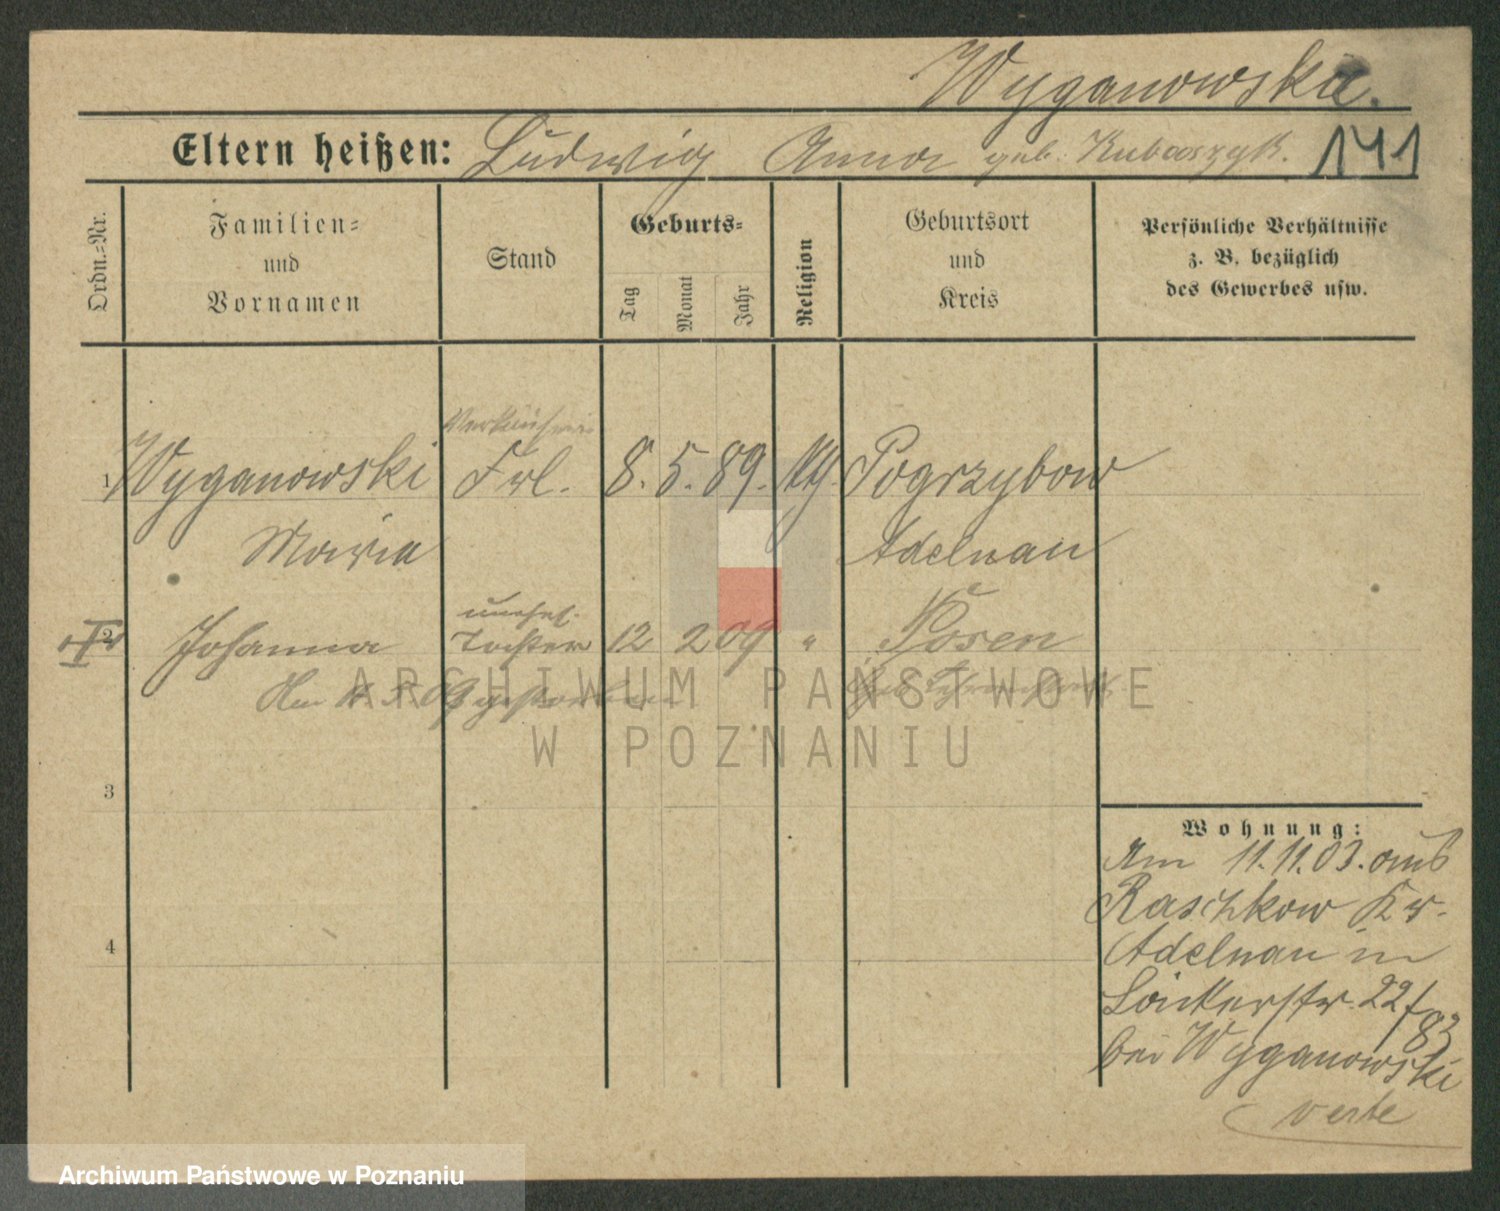 Wyganowska.
Eltern heißen: Ludwig Anna geb. Kubaszyk. 141
Ordn.=Nr.
Familien=
und
Vornamen
Stand
Geburts=
Tag
Monat
Jahr
Religion
Geburtsort
und
Kreis
Persönliche Verhältnisse
z. B. bezüglich
des Gewerbes usw.
Verkäuferin
1 Wyganowski Frl. 8. 5. 89. Pogrzybow
Maria Adelnau
unehel.
2 Johanna Tochter 12 2 09 " Posen
gestorben
ARCHIWUM PAŃSTWOWE
W POZNANIU
3
4
Wohnung:
Am 11.11.03. aus
Raschkow Kr.
Adelnau in
22/83
bei Wyganowski
verte
Archiwum Państwowe w Poznaniu